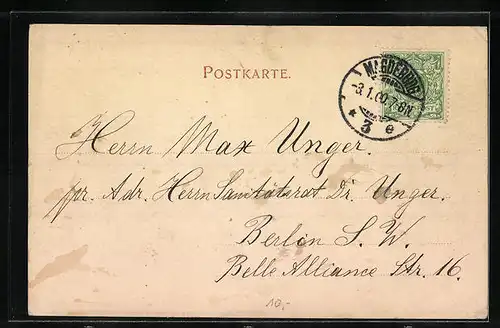 POSTKARTE.
MAGDEBURG
-3.1.00. 7-8N.
* 3 e
Herrn Max Unger.
pr. Adr. Herrn Sanitätsrat Dr. Unger.
Berlin S. W.
Belle Alliance Str. 16.
10,-